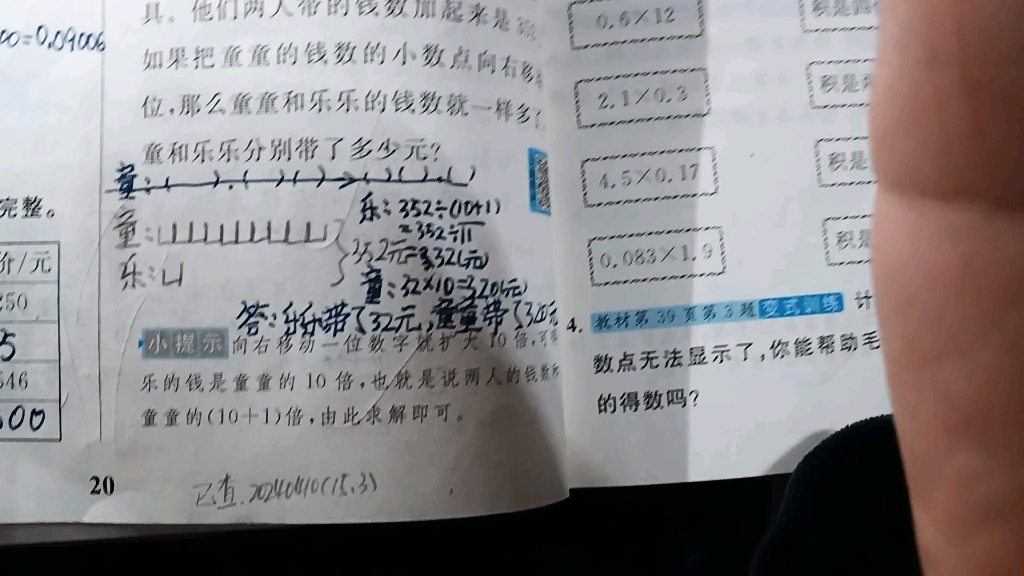 00=0.09006
具。他们两人带的钱数加起来是
如果把童童的钱数的小数点向右移
位,那么童童和乐乐的钱数就一样多了
童和乐乐分别带了多少元?
童:
童:
乐:
352元
乐:352÷(10+1)
=352÷11
=32(元)
童:32×10=320(元)
答:乐乐带了32元,童童带了320元
小提示 向右移动一位数字就扩大10倍,
乐的钱是童童的10倍,也就是说两人的钱数
童童的(10+1)倍,由此求解即可。
20
已查.20240410(15.3)
完整。
价/元
250
5
546
500
0.6×12
2.1×0.3
4.5×0.17
0.083×1.9
积是
积是
积是
积是
4. 教材第39页第3题 变式训练 计
数点无法显示了,你能帮助毛
的得数吗?